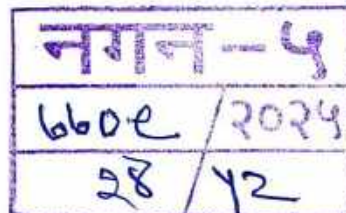 नगन-५
७७०९/२०२५
२४/५२